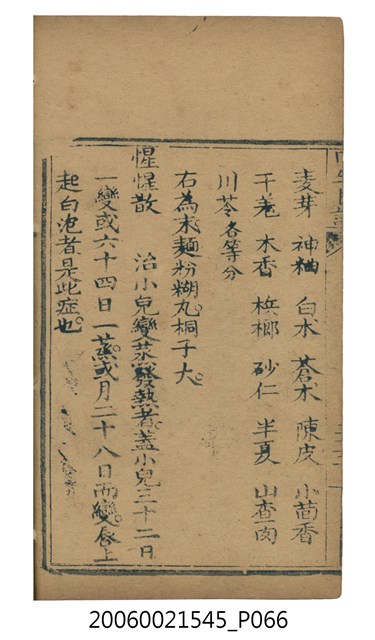 麦芽 神粬 白朮 蒼朮 陳皮 小茴香
干羌 木香 梹榔 砂仁 半夏 山查肉
川芩各等分
右為末麵粉糊丸桐子大
惺惺散 治小兒變蒸發熱者蓋小兒三十二日
一變或六十四日一蒸或月二十八日而變唇上
起白泡者是此症也
20060021545_P066